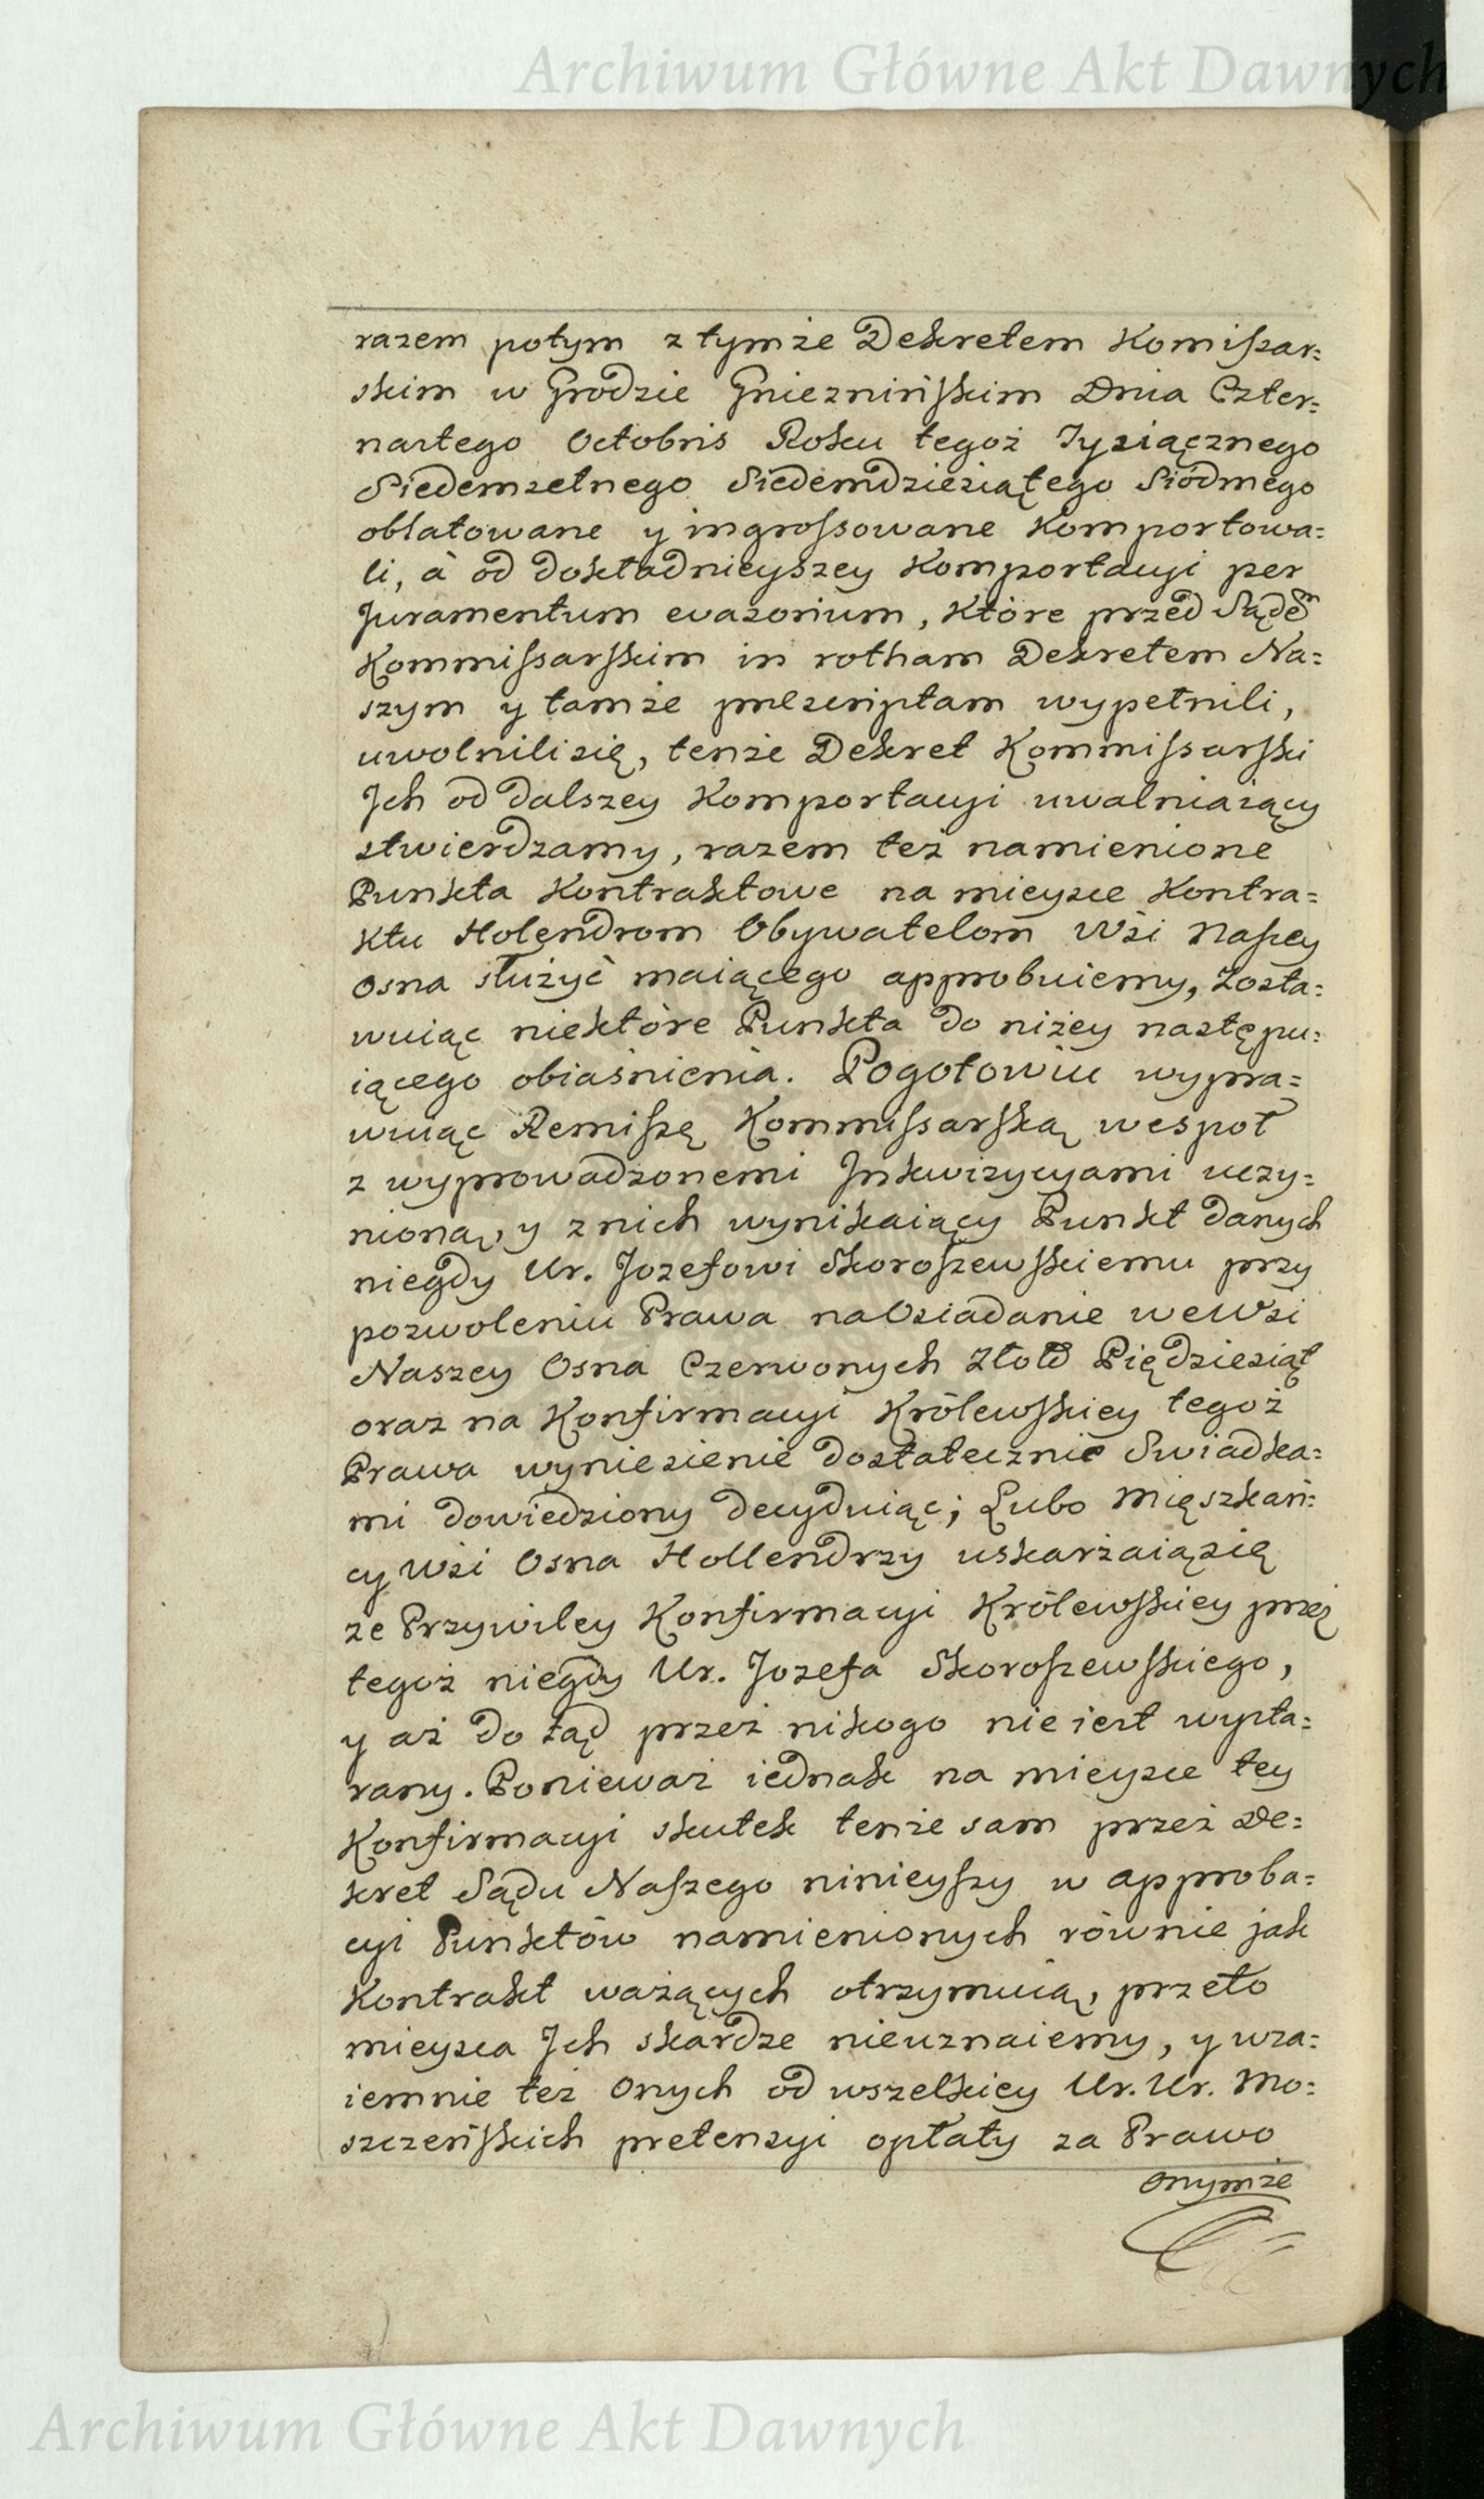 Archiwum Główne Akt Dawnych
razem potym z tymże Dekretem Komissar=
skim w Grodzie Gnieznińskim Dnia Czter=
nastego Octobris Roku tegoż Tysiącznego
Siedemsetnego Siedemdziesiątego Siódmego
oblatowane y ingrossowane komportowa=
li, à od dokładnieyszey Komportacyi per
Juramentum evasorium, które przed Sądem
Kommissarskim in rotham Dekretem Na=
szym y tamże prescriptam wypełnili,
uwolnili się, tenże Dekret Kommissarski
Jch od dalszey Komportacyi uwalniaiący
stwierdzamy, razem też namienione
Punkta Kontraktowe na mieysce Kontra=
ktu Holendrom Obywatelom Wsi Naszey
Osna służyć maiącego approbuiemy, zosta=
wuiąc niektóre Punkta do niżey następu=
iącego obiaśnienia. Pogotowiu wypra=
wuiąc Remissę Kommissarską wespoł
z wyprowadzonemi Jnkwizycyami uczy=
nioną, y z nich wynikaiący Punkt danych
niegdy Ur. Jozefowi Skoroszewskiemu przy
pozwoleniu Prawa na Osiadanie we Wsi
Naszey Osna Czerwonych Złotd Pięćdziesiąt
oraz na Konfirmacyi Królewskiey tegoż
Prawa wyniesienie dostatecznie Swiadka=
mi dowiedziony decyduiąc; Lubo Mięszkań=
cy Wsi Osna Hollendrzy uskarżaią się
że Przywiley Konfirmacyi Królewskiey przez
tegoż niegdy Ur. Jozefa Skoroszewskiego,
y aż do tąd przez nikogo nie iest wysta=
rany. Ponieważ iednak na mieysce tey
Konfirmacyi skutek tenże sam przez De=
kret Sądu Naszego ninieyszy w approba=
cyi Punktów namienionych równie jak
Kontrakt ważących otrzymuią, przeto
mieysca Jch skardze nieuznaiemy, y wza=
iemnie też Onych od wszelkiey Ur. Ur. Mo=
szczeńskich pretensyi opłaty za Prawo
onymże
Archiwum Główne Akt Dawnych